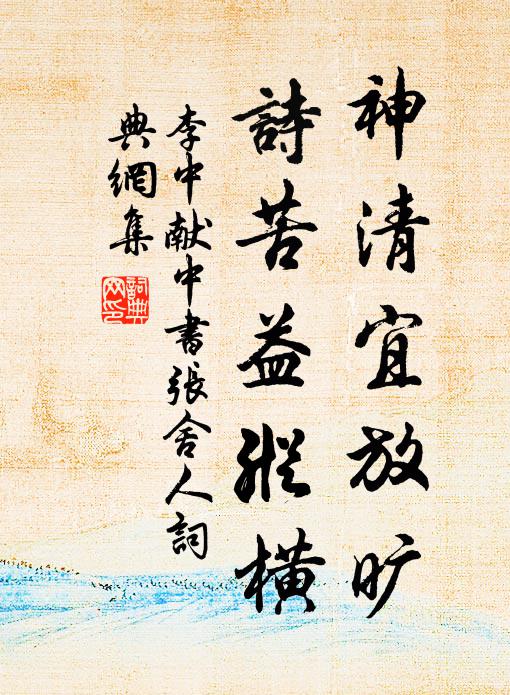 神清宜放旷
詩苦益縱橫
李中献中書張舍人詞
典網集
詞典
网印